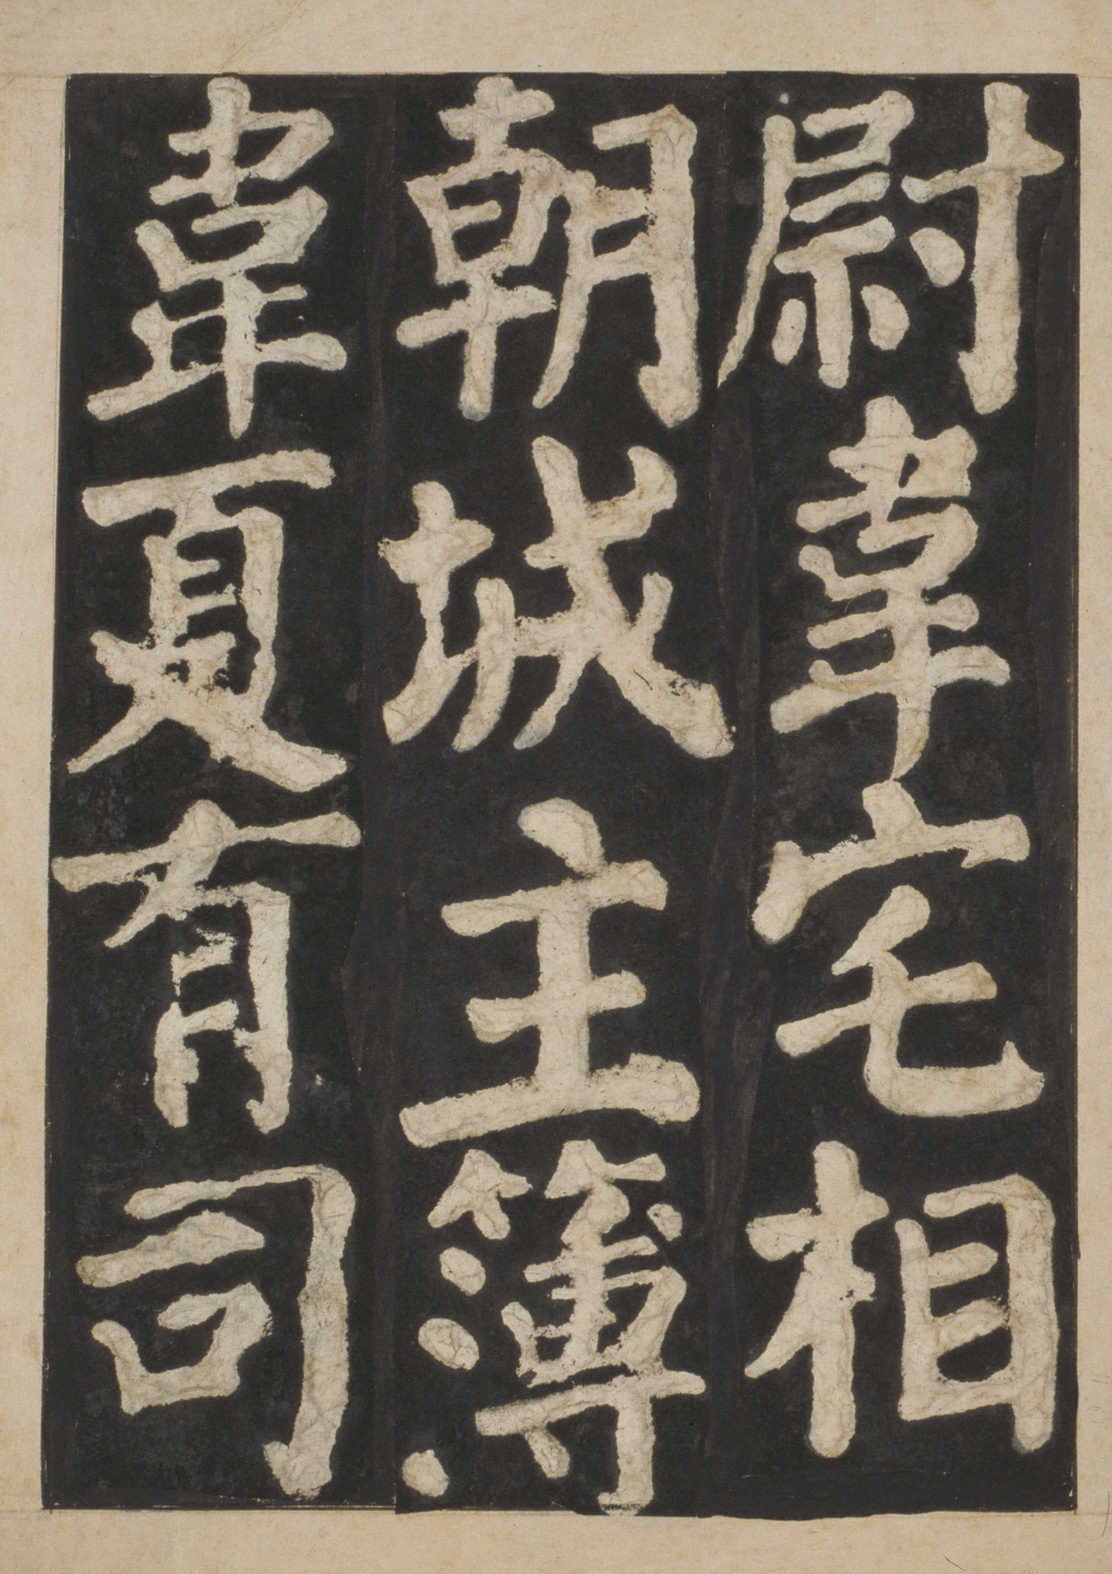 尉韋宅相
朝城主簿
韋夏有司